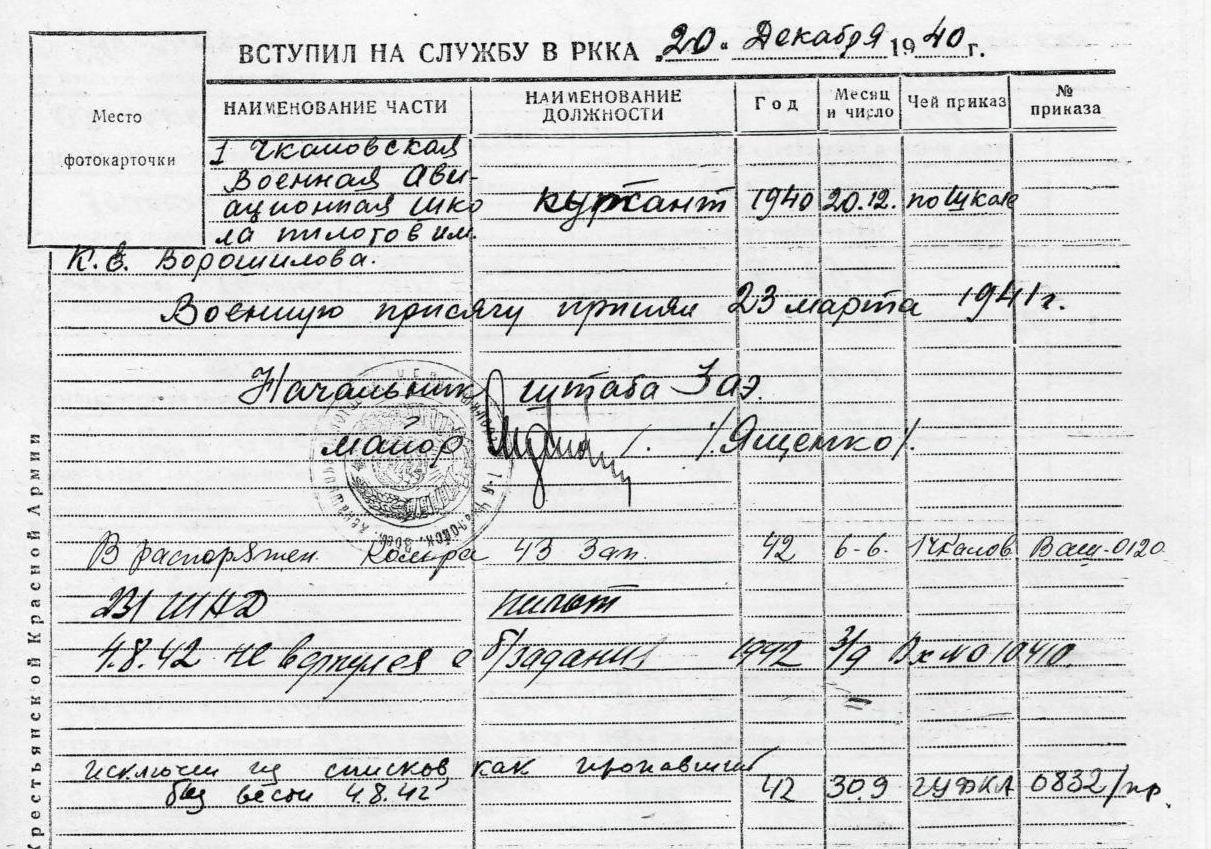 ВСТУПИЛ НА СЛУЖБУ В РККА „20“ Декабря 1940 г.
Место фотокарточки
НАИМЕНОВАНИЕ ЧАСТИ НАИМЕНОВАНИЕ ДОЛЖНОСТИ Год Месяц и число Чей приказ № приказа
1 Чкаловская
Военная Ави-
ационная шко курсант 1940 20.12. по школе
ла пилотов им.
К.Е. Ворошилова.
Военную присягу принял 23 марта 1941 г.
Начальник штаба 3 аэ.
майор /Ященко/.
В распоряжен. Комира 43 Зап. 42 6-6. 1 Чкалов. Ваш-0120
231 ШАД пилот
4.8.42 не вернулся с б/задания 1942 3/9 Вх № 010410.
исключен из списков, как пропавший
без вести 4.8.42 42 30.9 ГУФКА 0832/пр.
Крестьянской Красной Армии